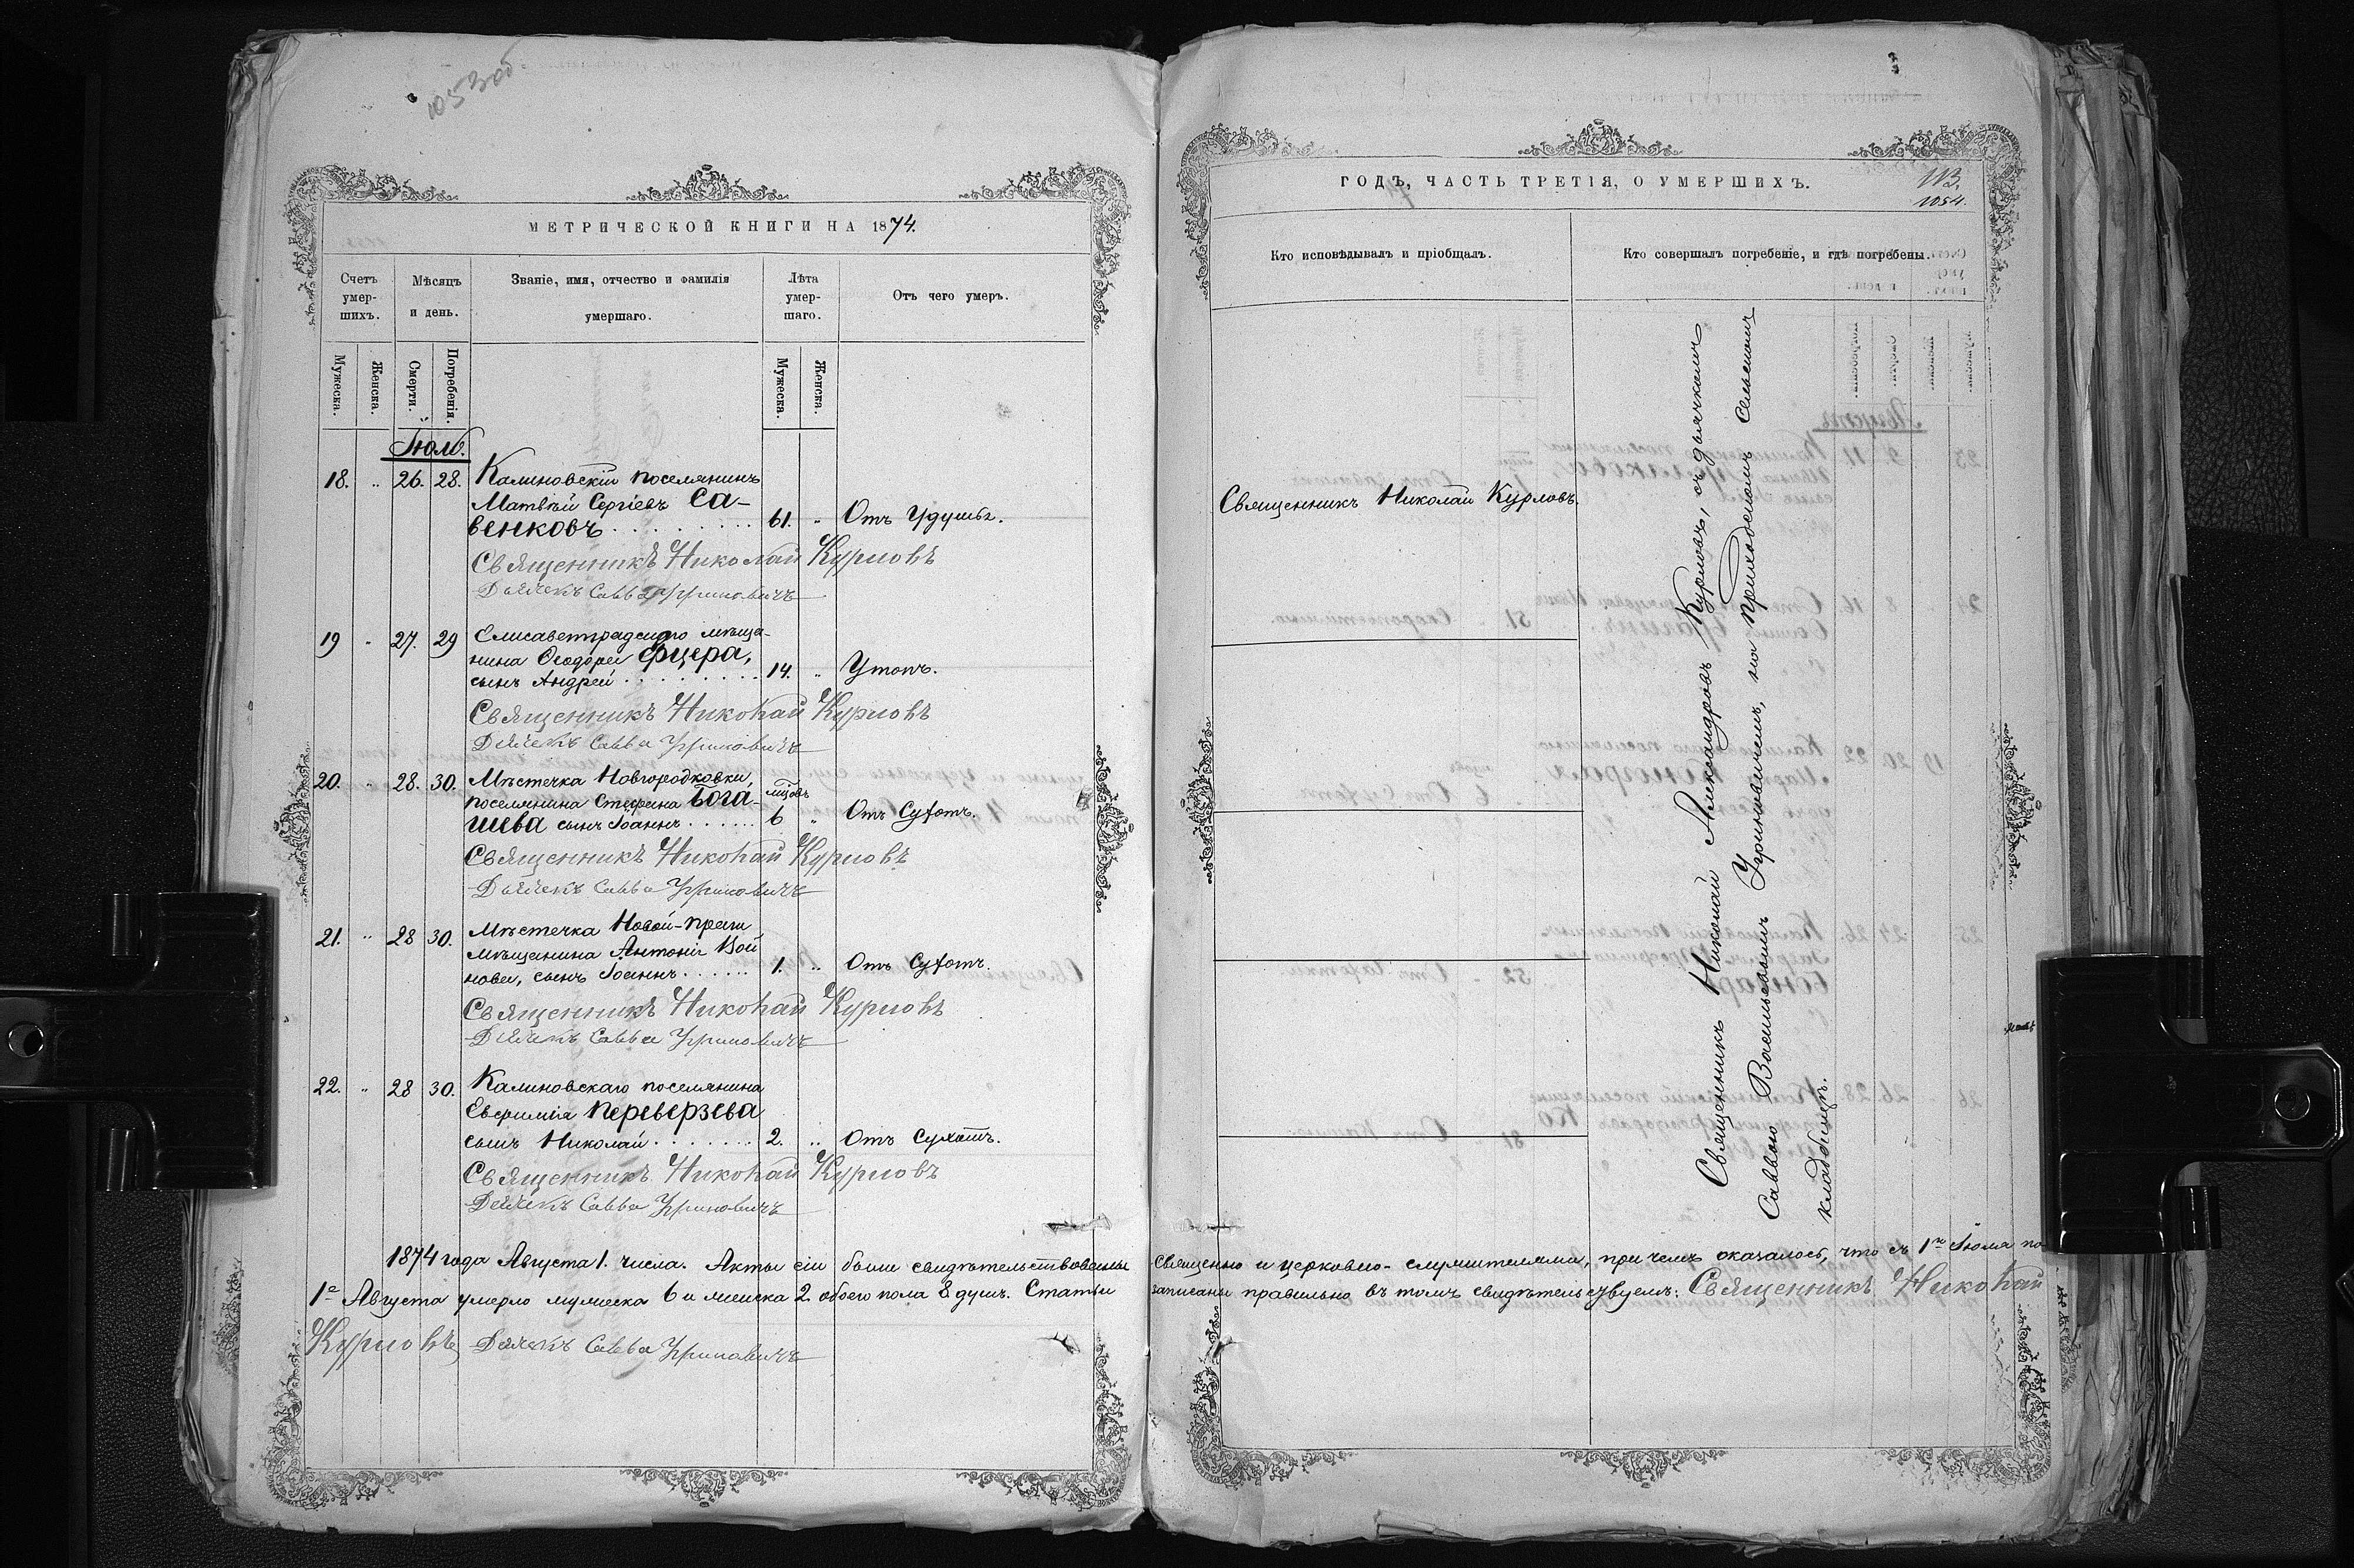 1053 об.
МЕТРИЧЕСКОЙ КНИГИ НА 1874.
Счетъ умер-шихъ.
Мѣсяцъ и день.
Званіе, имя, отчество и фамилія умершаго.
Лѣта умер-шаго.
Отъ чего умеръ.
Мужеска. Женска. Смерти. Погребенія. Мужеска. Женска.
Іюль.
18. " 26. 28. Калиновскій поселянинъ
Матвѣй Сергіевъ Са-
венковъ 61. " Отъ Удушья.
Священникъ Николай Курловъ
Дьячекъ Савва Угриновичъ
19 " 27. 29 Елисаветградскаго мѣща-
нина Ѳеодора Фцера,
сынъ Андрей 14. " Утопъ.
Священникъ Николай Курловъ
Дьячекъ Савва Угриновичъ
20. " 28. 30. Мѣстечка Новгородковки
поселянина Стефана Бога-
шева сынъ Іоаннъ мцовъ 6 " Отъ Сухотъ.
Священникъ Николай Курловъ
Дьячекъ Савва Угриновичъ
21. " 28 30. Мѣстечка Новой-Праги
мѣщанина Антонія Вой
нова, сынъ Іоаннъ 1. " Отъ Сухотъ.
Священникъ Николай Курловъ
Дьячекъ Савва Угриновичъ
22. " 28 30. Калиновскаго поселянина
Евфимія Переверзева
сынъ Николай 2. " Отъ Сухотъ.
Священникъ Николай Курловъ
Дьячекъ Савва Угриновичъ
1874 года Августа 1. числа. Акты сіи были свидѣтельствованы
1е Августа умерло мужеска 6 и женска 2 обоего пола 8 душъ. Статьи
Курловъ Дьячекъ Савва Угриновичъ
ГОДЪ, ЧАСТЬ ТРЕТІЯ, О УМЕРШИХЪ.
113.
1054.
Кто исповѣдывалъ и пріобщалъ.
Кто совершалъ погребеніе, и гдѣ погребены.
Священникъ Николай Курловъ.
Священникъ Николай Александровъ Курловъ, съ дьячкомъ
Саввою Васильевымъ Угриновичемъ, на приходскомъ Сельскомъ
кладбищѣ.
Священно и церковно-служителями, при чемъ оказалось, что съ 1го Іюля по
записаны правильно въ томъ свидѣтельствуемъ: Священникъ Николай